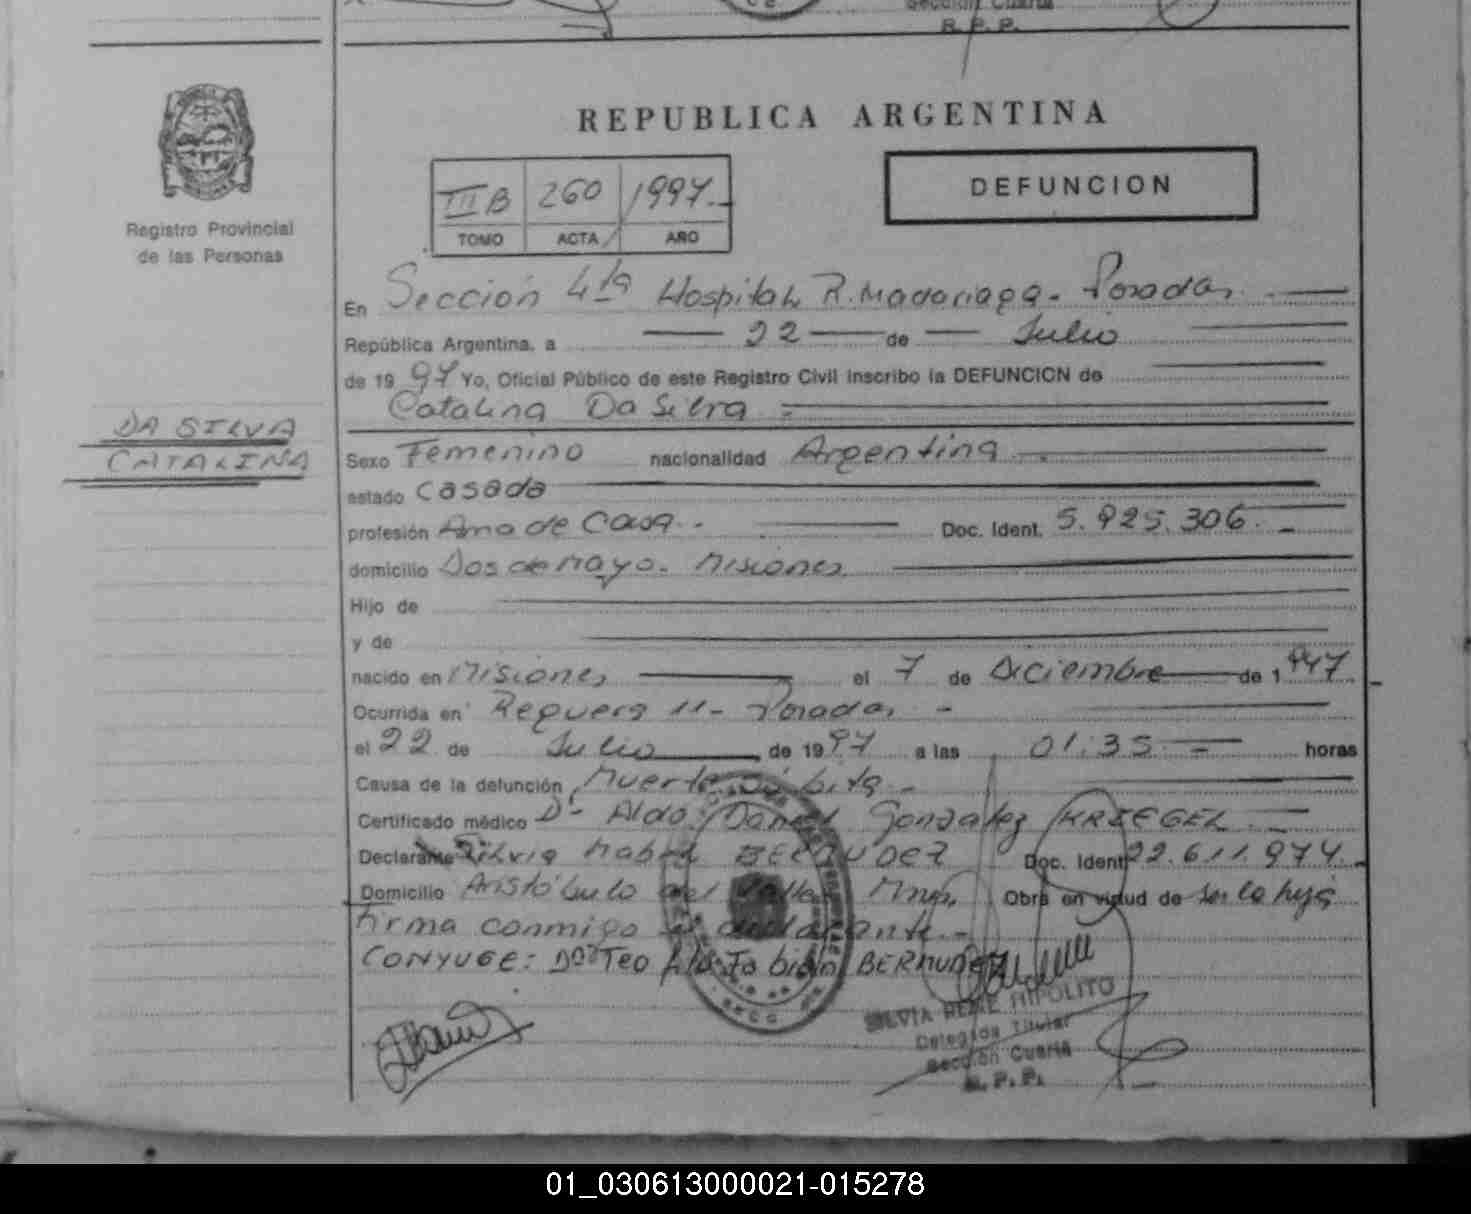 Sección Cuarta
R. P. P.
REPUBLICA ARGENTINA
III B 260 1997
TOMO ACTA AÑO
DEFUNCION
Registro Provincial
de las Personas
En Sección 4ta Hospital R. Madariaga - Posadas
República Argentina, a 22 de Julio
de 1997 Yo, Oficial Público de este Registro Civil inscribo la DEFUNCION de
Catalina Da Silva
DA SILVA
CATALINA
Sexo Femenino nacionalidad Argentina
estado Casada
profesión Ama de Casa. Doc. Ident. 5.925.306
domicilio Dos de Mayo. Misiones
Hijo de
y de
nacido en Misiones el 7 de Diciembre de 1947
Ocurrida en Requera 11 - Posadas -
el 22 de Julio de 1997 a las 01:35 horas
Causa de la defunción Muerte Súbita -
Certificado médico Dr Aldo Daniel Gonzalez KRIEGEL
Declarante Silvia Mabel BERMUDEZ Doc. Ident 22.611.974
Domicilio Aristóbulo del Valle Mnes. Obra en virtud de ser la hija
firma conmigo la declarante.-
CONYUGE: Dn Teofilo Fabian BERMUDEZ
SILVIA RENE HIPOLITO
Delegada Titular
Sección Cuarta
R. P. P.
01_030613000021-015278